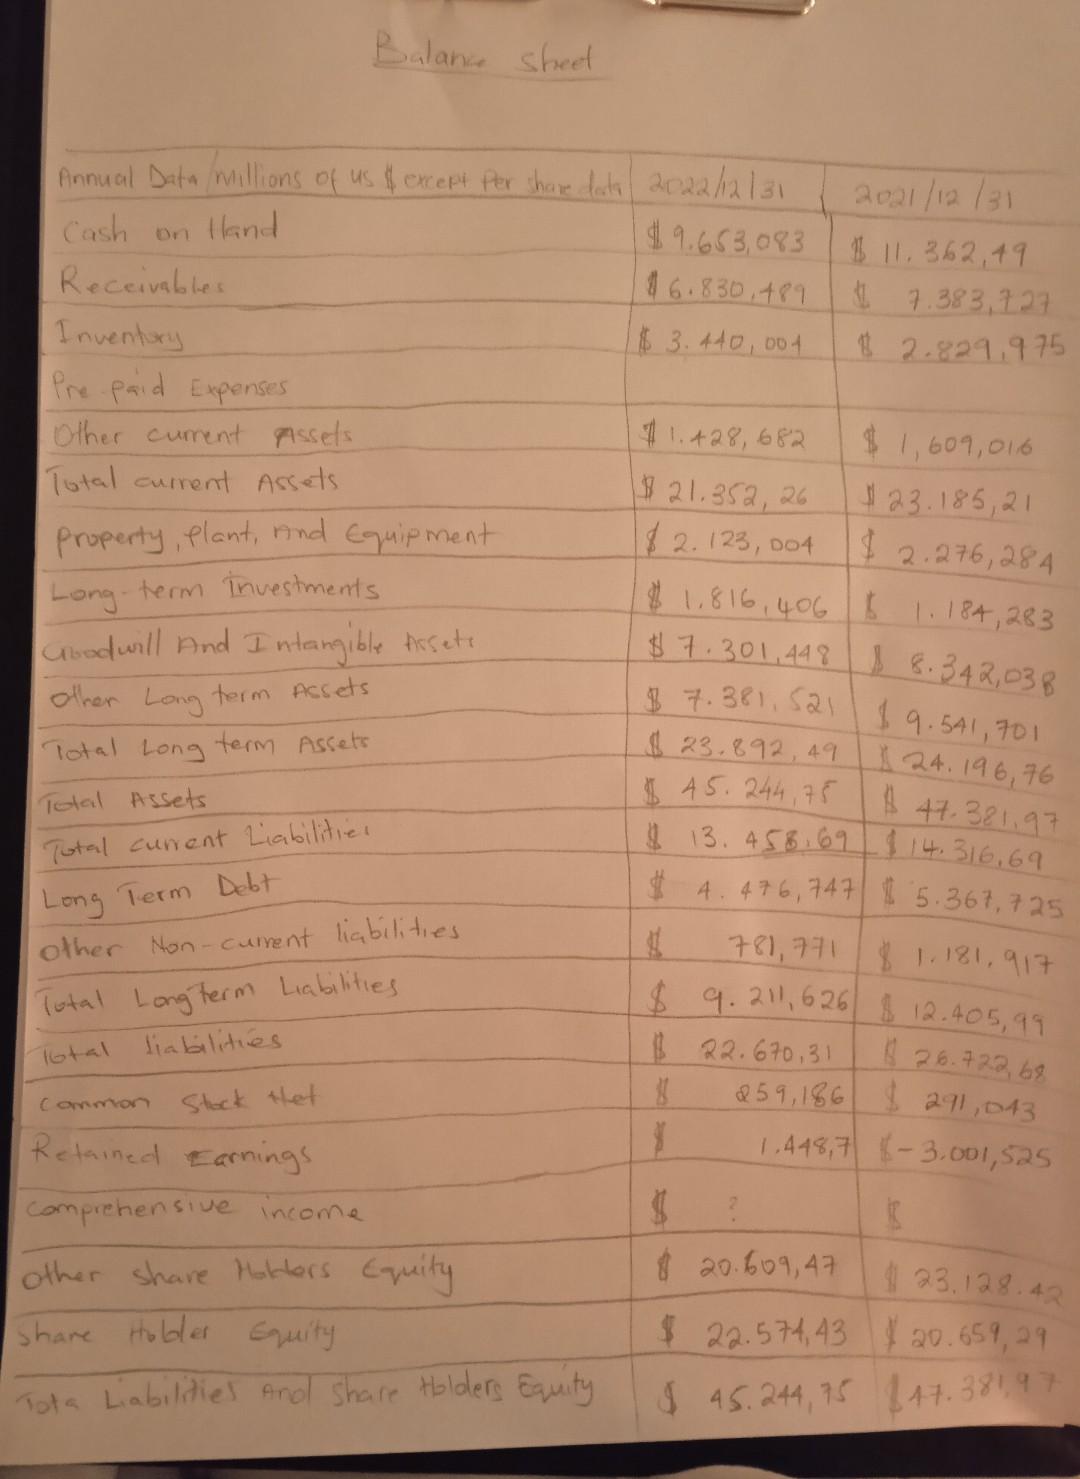 Balance sheet
Annual Data/millions of us $ except Per share data 2022/12/31 2021/12/31
Cash on Hand $ 9.653,083 $ 11.362,49
Receivables $ 6.830,489 $ 7.383,727
Inventory $ 3.440,004 $ 2.829,975
Pre-paid Expenses
Other current Assets $ 1.428,682 $ 1,609,016
Total current Assets $ 21.352,26 $ 23.185,21
property, plant, And Equipment $ 2.123,004 $ 2.276,284
Long-term Investments $ 1.816,406 $ 1.184,283
Goodwill And Intangible Assets $ 7.301,448 $ 8.342,038
Other Long term Assets $ 7.381,521 $ 9.541,701
Total Long term Assets $ 23.892,49 $ 24.196,76
Total Assets $ 45.244,75 $ 47.381,97
Total current Liabilities $ 13.458,69 $ 14.316,69
Long Term Debt $ 4.476,747 $ 5.367,725
Other Non-current liabilities $ 781,771 $ 1.181,917
Total Long Term Liabilities $ 9.211,626 $ 12.405,99
Total liabilities $ 22.670,31 $ 26.722,68
Common Stock Net $ 259,186 $ 291,043
Retained Earnings $ 1.448,7 $-3.001,525
Comprehensive income $ ? $
Other Share Holders Equity $ 20.609,47 $ 23.128.42
Share Holder Equity $ 22.574,43 $ 20.659,29
Tota Liabilities And Share Holders Equity $ 45.244,75 $ 47.381,97